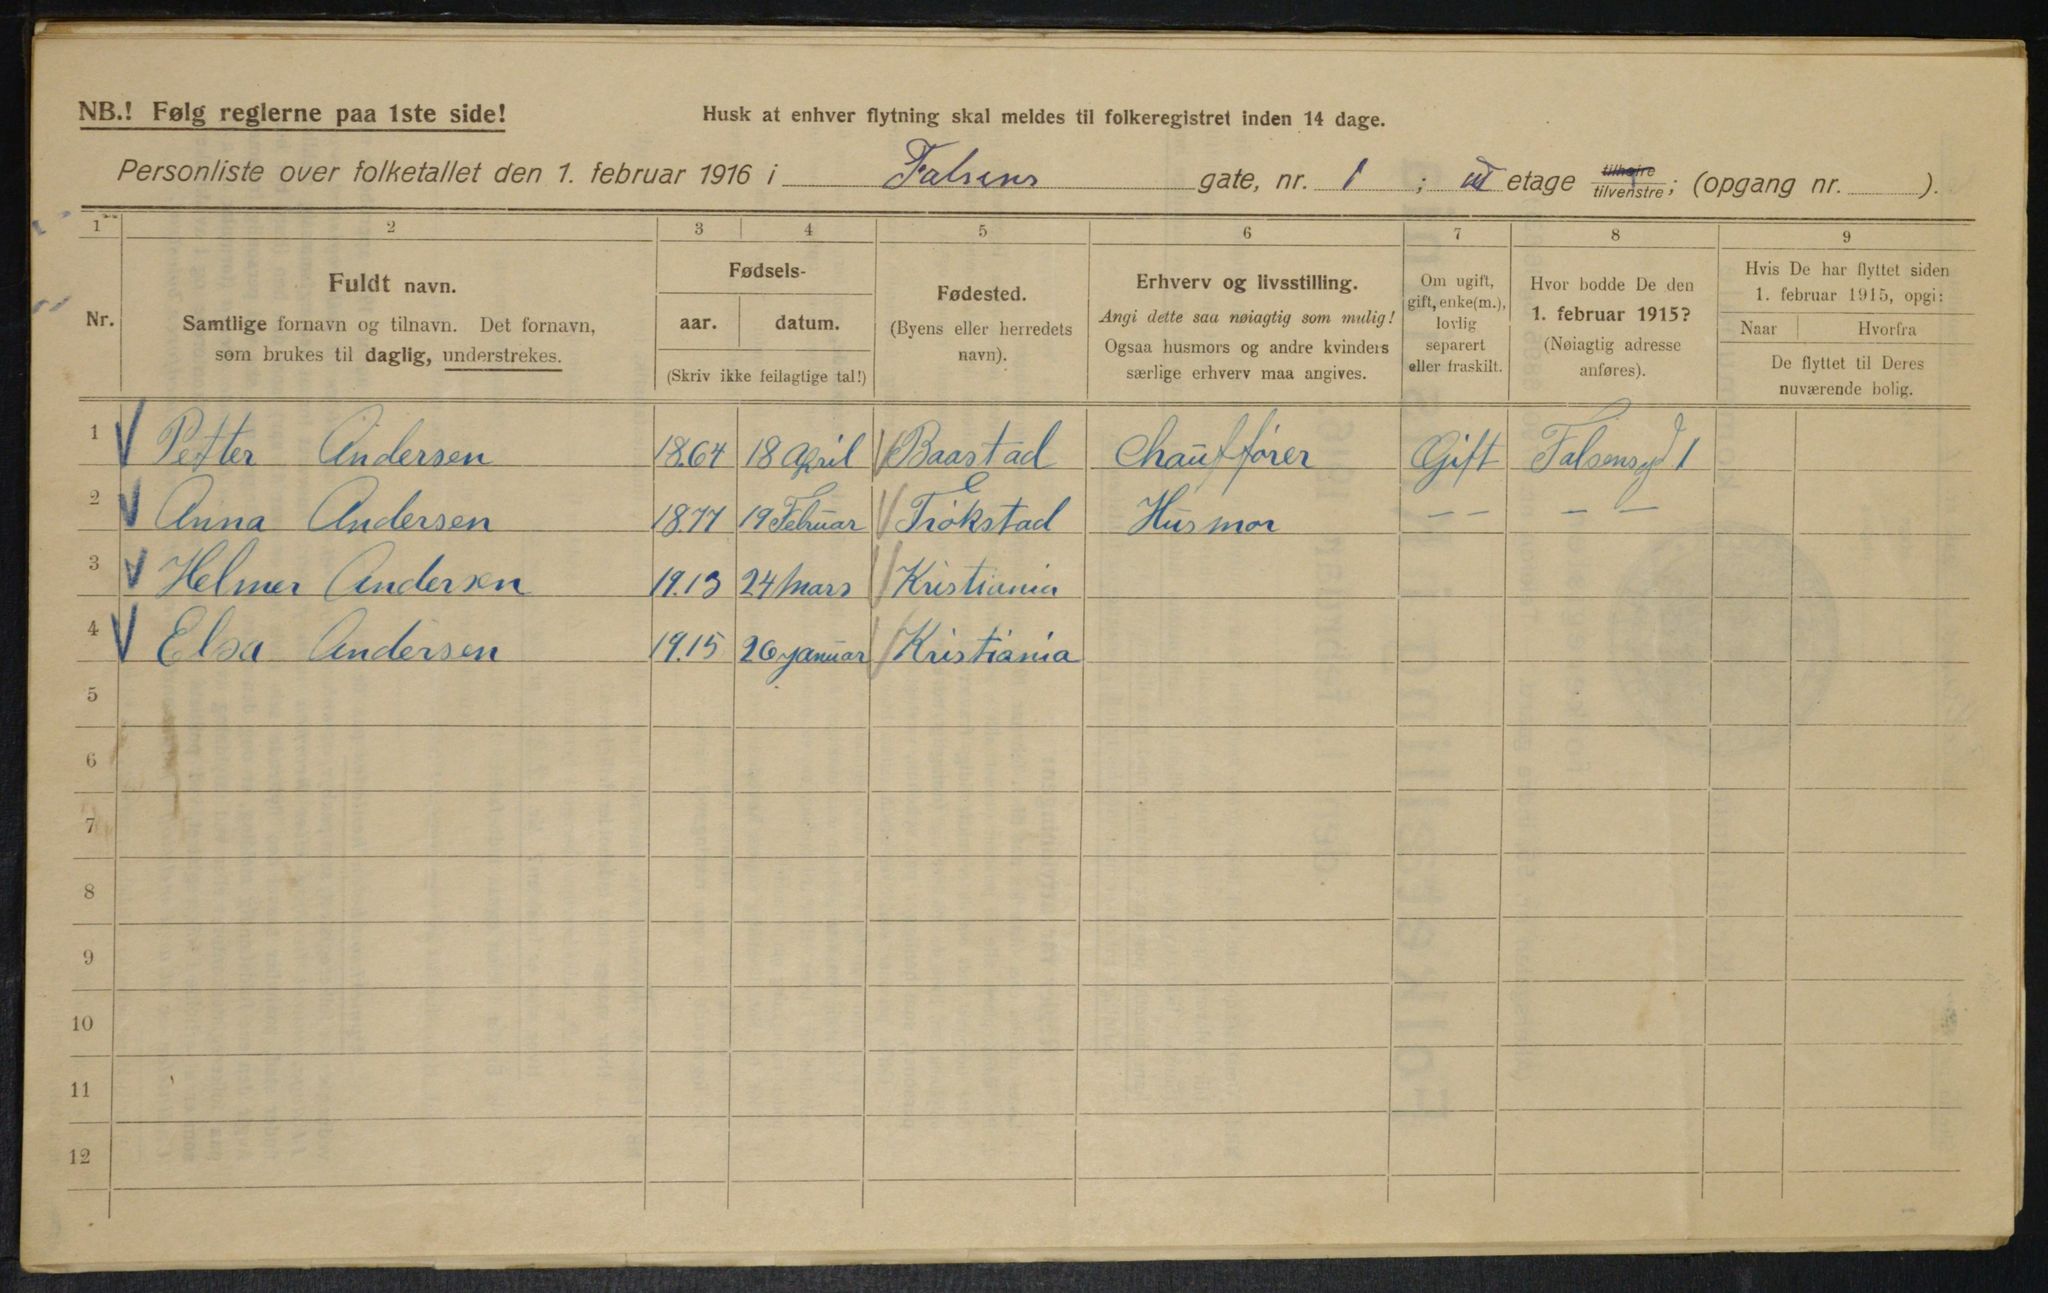 NB.! Følg reglerne paa 1ste side!
Husk at enhver flytning skal meldes til folkeregistret inden 14 dage.
Personliste over folketallet den 1. februar 1916 i Falsens gate, nr. 1 ; III etage tilhøire tilvenstre; (opgang nr. ).
1 2 3 4 5 6 7 8 9
Nr.
Fuldt navn.
Samtlige fornavn og tilnavn. Det fornavn,
som brukes til daglig, understrekes.
Fødsels-
aar. datum.
(Skriv ikke feilagtige tal!)
Fødested.
(Byens eller herredets
navn).
Erhverv og livsstilling.
Angi dette saa nøiagtig som mulig!
Ogsaa husmors og andre kvinders
særlige erhverv maa angives.
Om ugift,
gift, enke(m.),
lovlig
separert
eller fraskilt.
Hvor bodde De den
1. februar 1915?
(Nøiagtig adresse
anføres).
Hvis De har flyttet siden
1. februar 1915, opgi:
Naar Hvorfra
De flyttet til Deres
nuværende bolig.
1 Petter Andersen 1864 18 April Baastad Chauffører Gift Falsensgd 1
2 Anna Andersen 1877 19 Februar Trøkstad Husmor — — — —
3 Helmer Andersen 1913 24 Mars Kristiania
4 Elsa Andersen 1915 26 Januar Kristiania
5
6
7
8
9
10
11
12